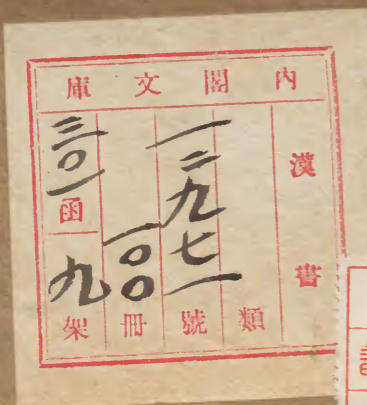 内閣文庫
漢書
類
一二九七一號
一〇〇冊
三〇一函
九架